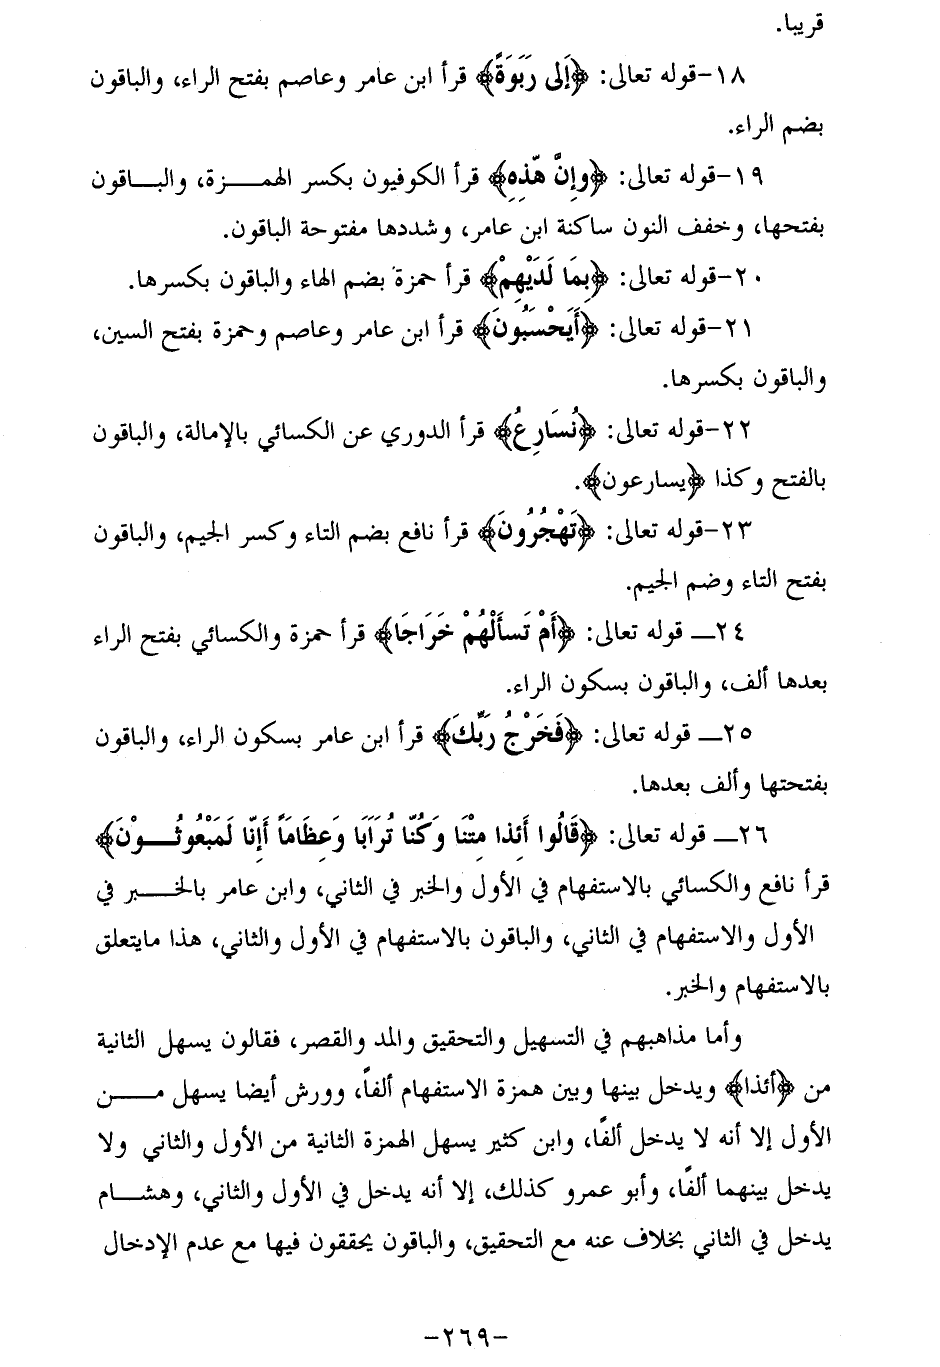 قريبا.
١٨-قوله تعالى: ﴿إَلى رَبَوَةً﴾ قرأ ابن عامر وعاصم بفتح الراء، والباقون
بضم الراء.
١٩-قوله تعالى: ﴿وإِنَّ هّذِهِ﴾ قرأ الكوفيون بكسر الهمـــزة، والبــاقون
بفتحها، وخفف النون ساكنة ابن عامر، وشددها مفتوحة الباقون.
٢٠-قوله تعالى: ﴿بِمَا لَدَيْهِمْ﴾ قرأ حمزة بضم الهاء والباقون بكسرها.
٢١-قوله تعالى: ﴿أَيَحْسَبُونَ﴾ قرأ ابن عامر وعاصم وحمزة بفتح السين،
والباقون بكسرها.
٢٢-قوله تعالى: ﴿نُسَارِعُ﴾ قرأ الدوري عن الكسائي بالإمالة، والباقون
بالفتح وكذا ﴿يسارعون﴾.
٢٣-قوله تعالى: ﴿تَهْجُرُونَ﴾ قرأ نافع بضم التاء وكسر الجيم، والباقون
بفتح التاء وضم الجيم.
٢٤ــ قوله تعالى: ﴿أَمْ تَسأَلْهُمْ خَرَاجَا﴾ قرأ حمزة والكسائي بفتح الراء
بعدها ألف، والباقون بسكون الراء.
٢٥ــ قوله تعالى: ﴿فَخَرْجُ رَبِّكَ﴾ قرأ ابن عامر بسكون الراء، والباقون
بفتحتها وألف بعدها.
٢٦ــ قوله تعالى: ﴿قَالُوا أَئذا مِتْنَا وَكُنّا تُرَابَا وَعِظَامَاً أَإِنّا لَمَبْعُوثُـــوْنَ﴾
قرأ نافع والكسائي بالاستفهام في الأول والخبر في الثاني، وابن عامر بالخـــبر في
الأول والاستفهام في الثاني، والباقون بالاستفهام في الأول والثاني، هذا مايتعلق
بالاستفهام والخبر.
وأما مذاهبهم في التسهيل والتحقيق والمد والقصر، فقالون يسهل الثانية
من ﴿أئذا﴾ ويدخل بينها وبين همزة الاستفهام ألفاً، وورش أيضا يسهل مـــن
الأول إلا أنه لا يدخل ألفًا، وابن كثير يسهل الهمزة الثانية من الأول والثاني ولا
يدخل بينهما ألفًا، وأبو عمرو كذلك، إلا أنه يدخل في الأول والثاني، وهشــام
يدخل في الثاني بخلاف عنه مع التحقيق، والباقون يحققون فيها مع عدم الإدخال
-٢٦٩-